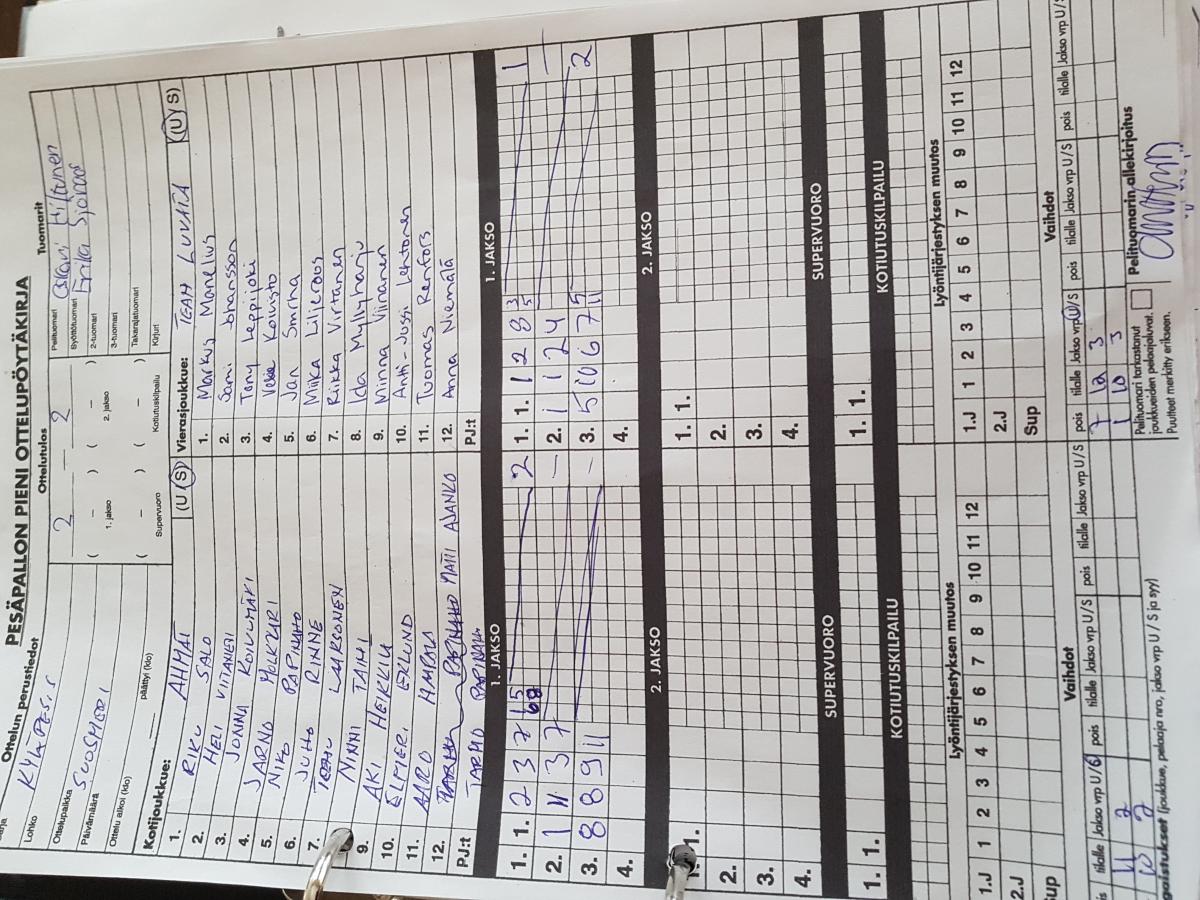 PESÄPALLON PIENI OTTELUPÖYTÄKIRJA
Ottelun perustiedot
Ottelutulos
Tuomarit
Lohko
Ottelupaikka
Päivämäärä SUOSMERI
Ottelu alkoi (klo)
päättyi (klo)
2 — 2
( — ) ( — )
1. jakso 2. jakso
( — ) ( — )
Supervuoro Kotiutuskilpailu
Pelituomari Oskari Hiltunen
Syöttötuomari Erika
2-tuomari
3-tuomari
Takarajatuomari
Kirjuri
Kotijoukkue: (U/S)
1. RIKU AHMAT
2. HELI SALO
3. VIITANEN
4. JONNA KOIVUMÄKI
5. JARNO
6. NIKO PAPINAHO
7. JUHO RINNE
LARSONEN
9. NINNI TAIMI
10. AKI HEIKKILÄ
11. ELMERI EKLUND
12. AARO
MATTI AJANKO
PJ:t TARMO
Vierasjoukkue: TEAM LUVATA (U/S)
1. Markus Manelius
2. Sami Johansson
3. Tony Leppijoki
4. Koivisto
5. Jan Smirna
6. Miika Liljeroos
7. Riikka Virtanen
8. Ida Myllyharju
9. Minna Viinanen
10. Antti-Jussi Lehtonen
11. Tuomas Renfors
12. Anna Niemälä
PJ:t
1. JAKSO
1. 1. 2 3 7 2
2. 1 11 3 7 —
3. 8 8 9 11 —
4.
1. JAKSO
1. 1. 1 2 8 1
2. 1 1 2 4 —
3. 5 10 6 7 2
4.
2. JAKSO
1. 1.
2.
3.
4.
2. JAKSO
1. 1.
2.
3.
4.
SUPERVUORO
1. 1.
SUPERVUORO
1. 1.
KOTIUTUSKILPAILU
KOTIUTUSKILPAILU
Lyöntijärjestyksen muutos
1.J 1 2 3 4 5 6 7 8 9 10 11 12
2.J
Sup
Lyöntijärjestyksen muutos
1.J 1 2 3 4 5 6 7 8 9 10 11 12
2.J
Sup
Vaihdot
tilalle Jakso vrp U/S pois tilalle Jakso vrp U/S pois tilalle Jakso vrp U/S
11 2
10 2
Vaihdot
pois tilalle Jakso vrp U/S pois tilalle Jakso vrp U/S pois tilalle Jakso vrp U/S
7 12 3
1 10 3
(joukkue, pelaaja nro, jakso vrp U/S ja syy)
Pelituomari tarkastanut
joukkueiden pelaajaluvat.
Puutteet merkitty erikseen.
Pelituomarin allekirjoitus